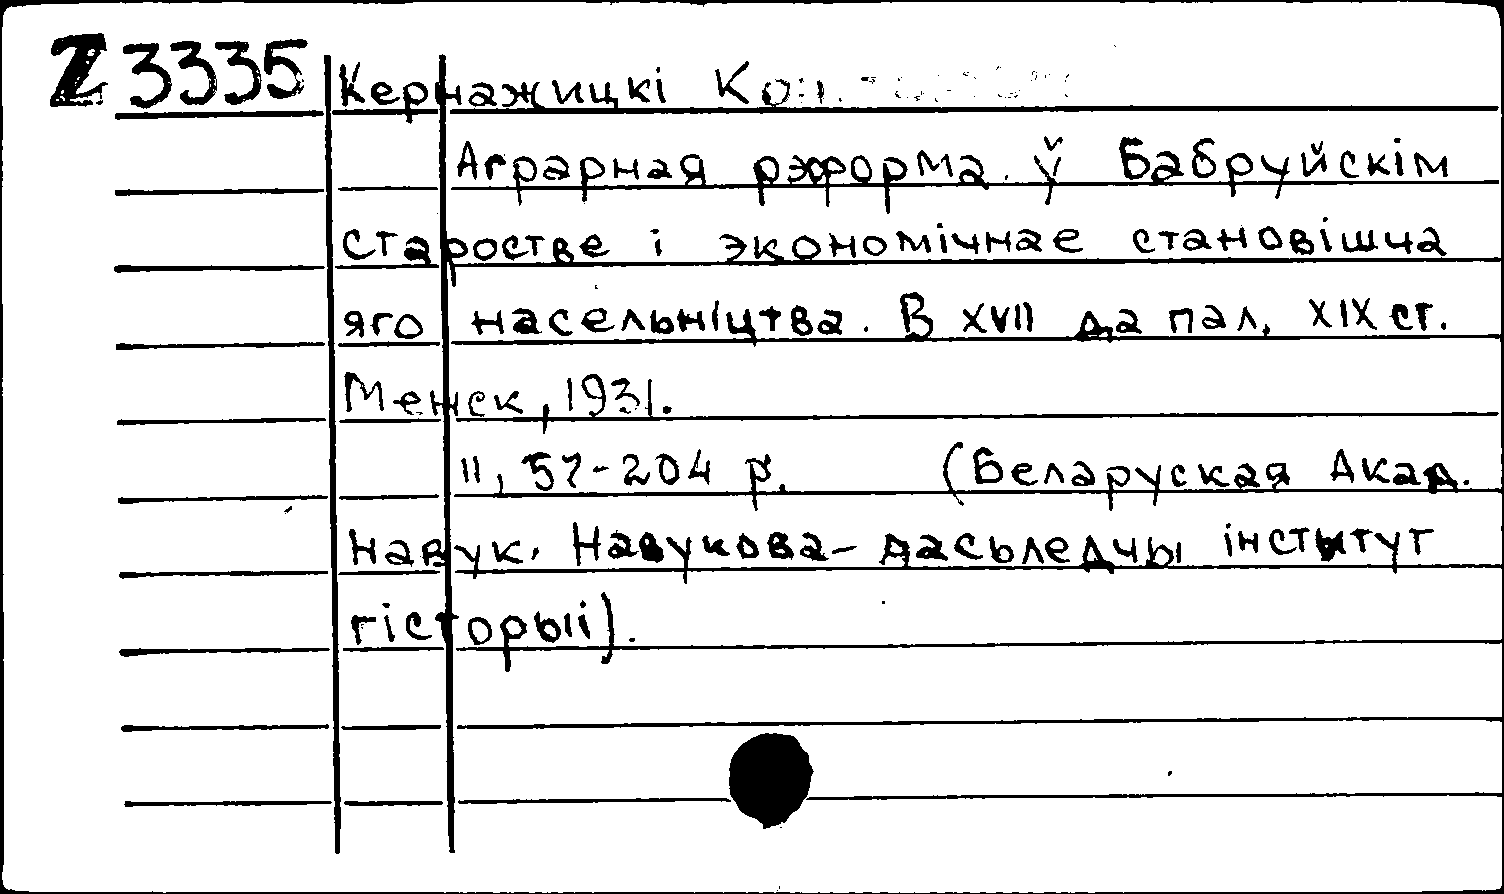 Z 3335 Кернажицкі
Аграрная рэформа ў Бабруйскім
старостве і экономічнае становішча
яго насельніцтва. В XVII да пал. XIX ст.
Менск, 1931.
II, 57-204 р. (Беларуская Акад.
навук. Навукова-дасьледчы інстытут
гісторыі).